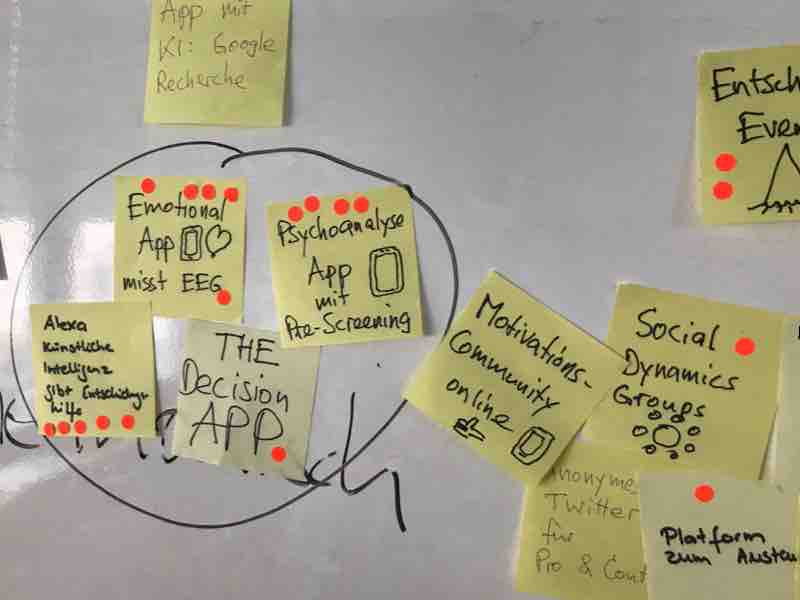 App mit
KI: Google
Recherche
Emotional
App
misst EEG
Psychoanalyse
App
mit
Pre-Screening
Alexa
Künstliche
Intelligenz
gibt Entscheidungs
hilfe
THE
Decision
APP
Motivations-
Community
online
Social
Dynamics
Groups
Entsch
Even
Anonyme
Twitter
für
Pro & Cont
Platform
zum Austau